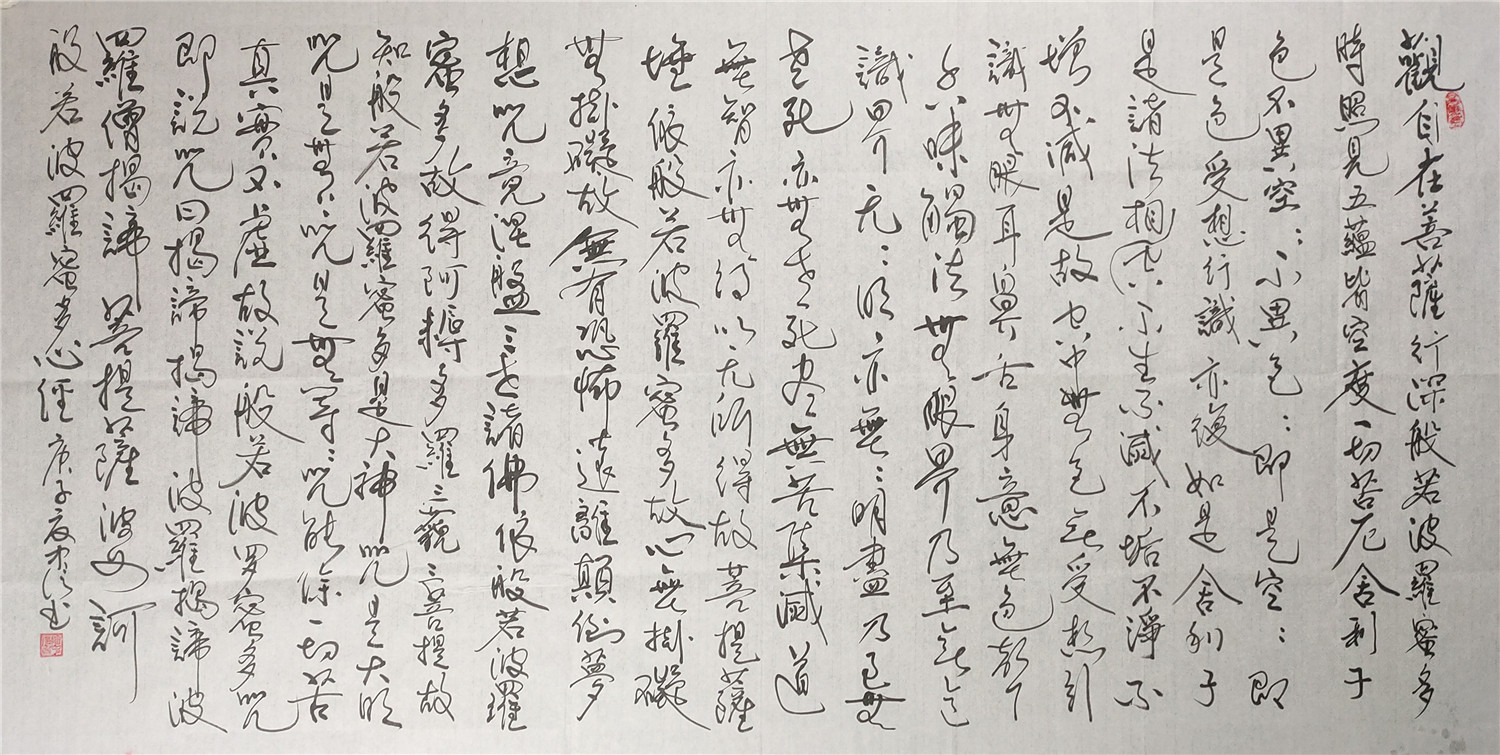 觀自在菩薩行深般若波羅蜜多
時照見五蘊皆空度一切苦厄舍利子
色不異空：不異色：即是空：即
是色受想行識亦復如是舍利子
是諸法相空不生不滅不垢不淨不
增不減是故空中無色無受想行
識無眼耳鼻舌身意無色聲
香味觸法無眼界乃至無意
識界无：明亦無：明盡乃至無
老死亦無老死盡無苦集滅道
無智亦無得以无所得故菩提薩
埵依般若波羅蜜多故心無掛礙
無掛礙故無有恐怖遠離顛倒夢
想究竟涅盤三世諸佛依般若波羅
蜜多故得阿耨多羅三藐三菩提故
知般若波羅蜜多是大神咒是大明
咒是無上咒是無等：咒能除一切苦
真實不虛故說般若波罗蜜多咒
即說咒曰揭諦揭諦波羅揭諦波
羅僧揭諦菩提薩波呵
般若波羅蜜多心經 庚子夏 書